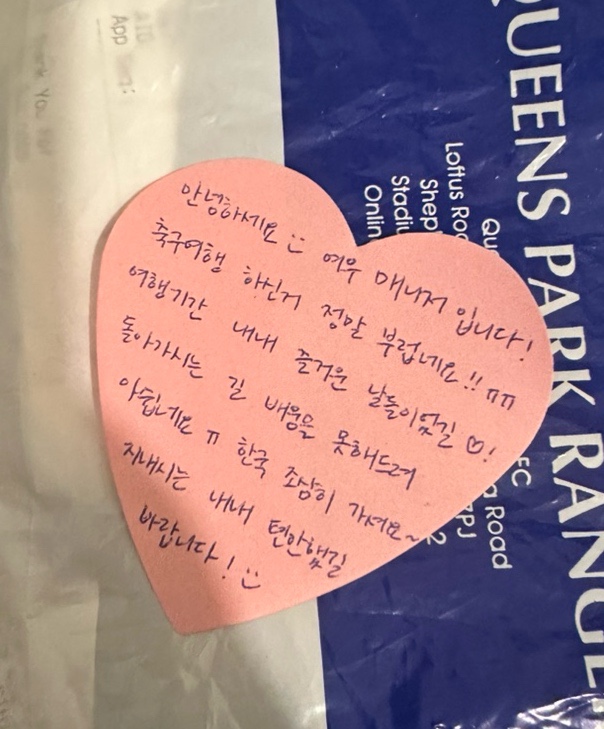 안녕하세요 :) 여우 매니저 입니다!
축구여행 하신거 정말 부럽네요!! ㅠㅠ
여행기간 내내 즐거운 날들이었길 ♡!
돌아가시는 길 배웅을 못해드려
아쉽네요 ㅠ 한국 조심히 가셔요~
지내시는 내내 편안했길
바랍니다! :)
QUEENS PARK RANGE
Loftus Roa
Shep
Stadiu
Onlin
Qu
FC
a Road
7PJ
2
App